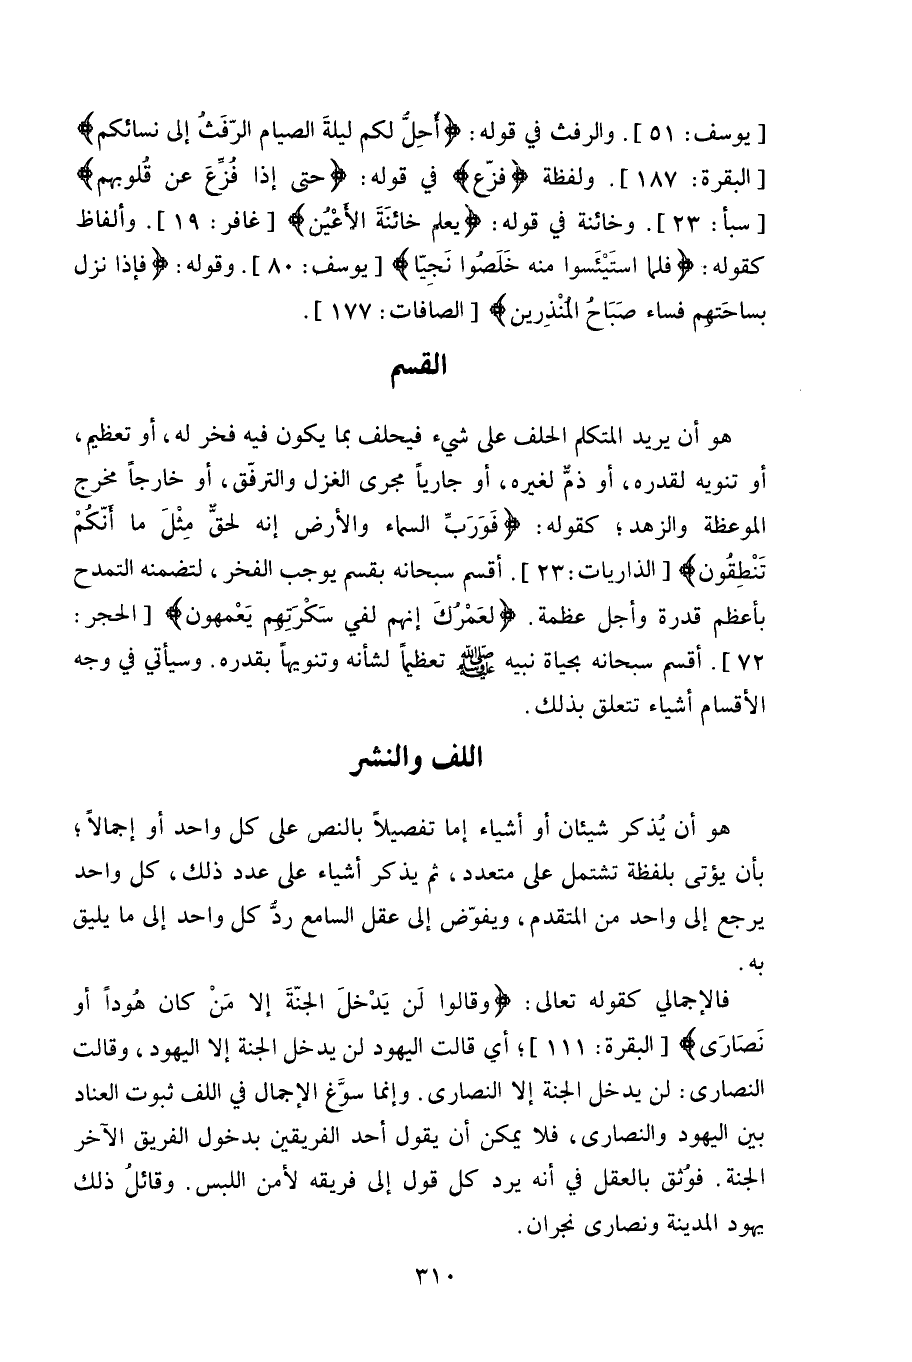 [ يوسف: ٥١ ]. والرفث في قوله: ﴿أُحِلُّ لكم ليلةَ الصيام الرّفَثُ إلى نسائكم﴾
[ البقرة: ١٨٧ ]. ولفظة ﴿فزّع﴾ في قوله: ﴿حتى إذا فُزِّعَ عن قُلوبهم﴾
[ سبأ: ٢٣ ]. وخائنة في قوله: ﴿يعلم خائنَةَ الأَعْيُن﴾ [ غافر: ١٩ ]. وألفاظ
كقوله: ﴿فلما استَيْئَسوا منه خَلَصُوا نَجِيّا﴾ [ يوسف: ٨٠ ]. وقوله: ﴿فإذا نزل
بساحَتهِم فساء صبَاحُ المُنْذِرين﴾ [ الصافات: ١٧٧ ].
القسم
هو أن يريد المتكلم الحلف على شيء فيحلف بما يكون فيه فخر له، أو تعظيم،
أو تنويه لقدره، أو ذمٌّ لغيره، أو جارياً مجرى الغزل والترفّق، أو خارجاً مخرج
الموعظة والزهد؛ كقوله: ﴿فَوَرَبِّ السماء والأرض إنه لحقٌّ مِثْلَ ما أَنّكُمْ
تَنْطِقُون﴾ [ الذاريات: ٢٣ ]. أقسم سبحانه بقسم يوجب الفخر، لتضمنه التمدح
بأعظم قدرة وأجل عظمة. ﴿لعَمْرُكَ إنهم لفي سَكْرَتِهِم يَعْمهون﴾ [ الحجر:
٧٢ ]. أقسم سبحانه بحياة نبيه ﷺ تعظيماً لشأنه وتنويهاً بقدره. وسيأتي في وجه
الأقسام أشياء تتعلق بذلك.
اللف والنشر
هو أن يُذكر شيئان أو أشياء إما تفصيلاً بالنص على كل واحد أو إجمالاً؛
بأن يؤتى بلفظة تشتمل على متعدد، ثم يذكر أشياء على عدد ذلك، كل واحد
يرجع إلى واحد من المتقدم، ويفوّض إلى عقل السامع ردُّ كل واحد إلى ما يليق
به.
فالإجمالي كقوله تعالى: ﴿وقالوا لَن يَدْخلَ الجنّةَ إلا مَنْ كان هُوداً أو
نَصَارَى﴾ [ البقرة: ١١١ ]؛ أي قالت اليهود لن يدخل الجنة إلا اليهود، وقالت
النصارى: لن يدخل الجنة إلا النصارى. وإنما سوَّغ الإجمال في اللف ثبوت العناد
بين اليهود والنصارى، فلا يمكن أن يقول أحد الفريقين بدخول الفريق الآخر
الجنة. فوُثق بالعقل في أنه يرد كل قول إلى فريقه لأمن اللبس. وقائلُ ذلك
يهود المدينة ونصارى نجران.
٣١٠